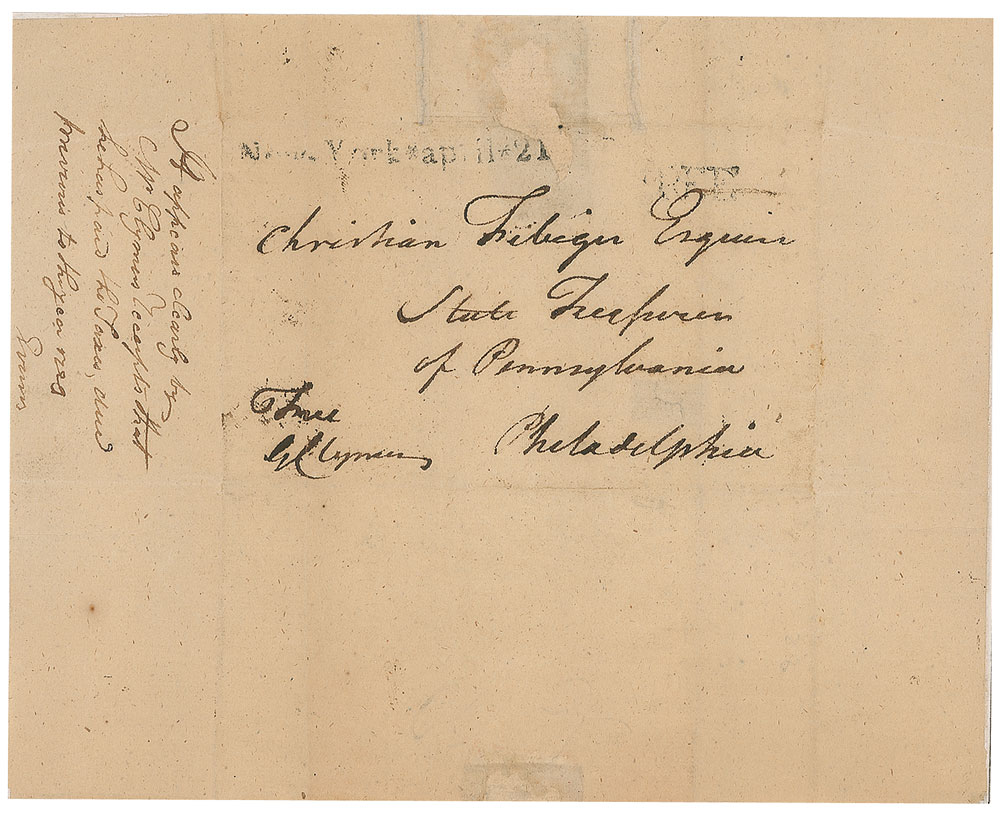 New York*april*21
Christian Febiger Esquire
State Treasurer
of Pennsylvania
Free
G Clymer
Philadelphia
It appears clearly by
Mr Clymers receipts that
he has paid the Taxes, due
previous to the year 1789